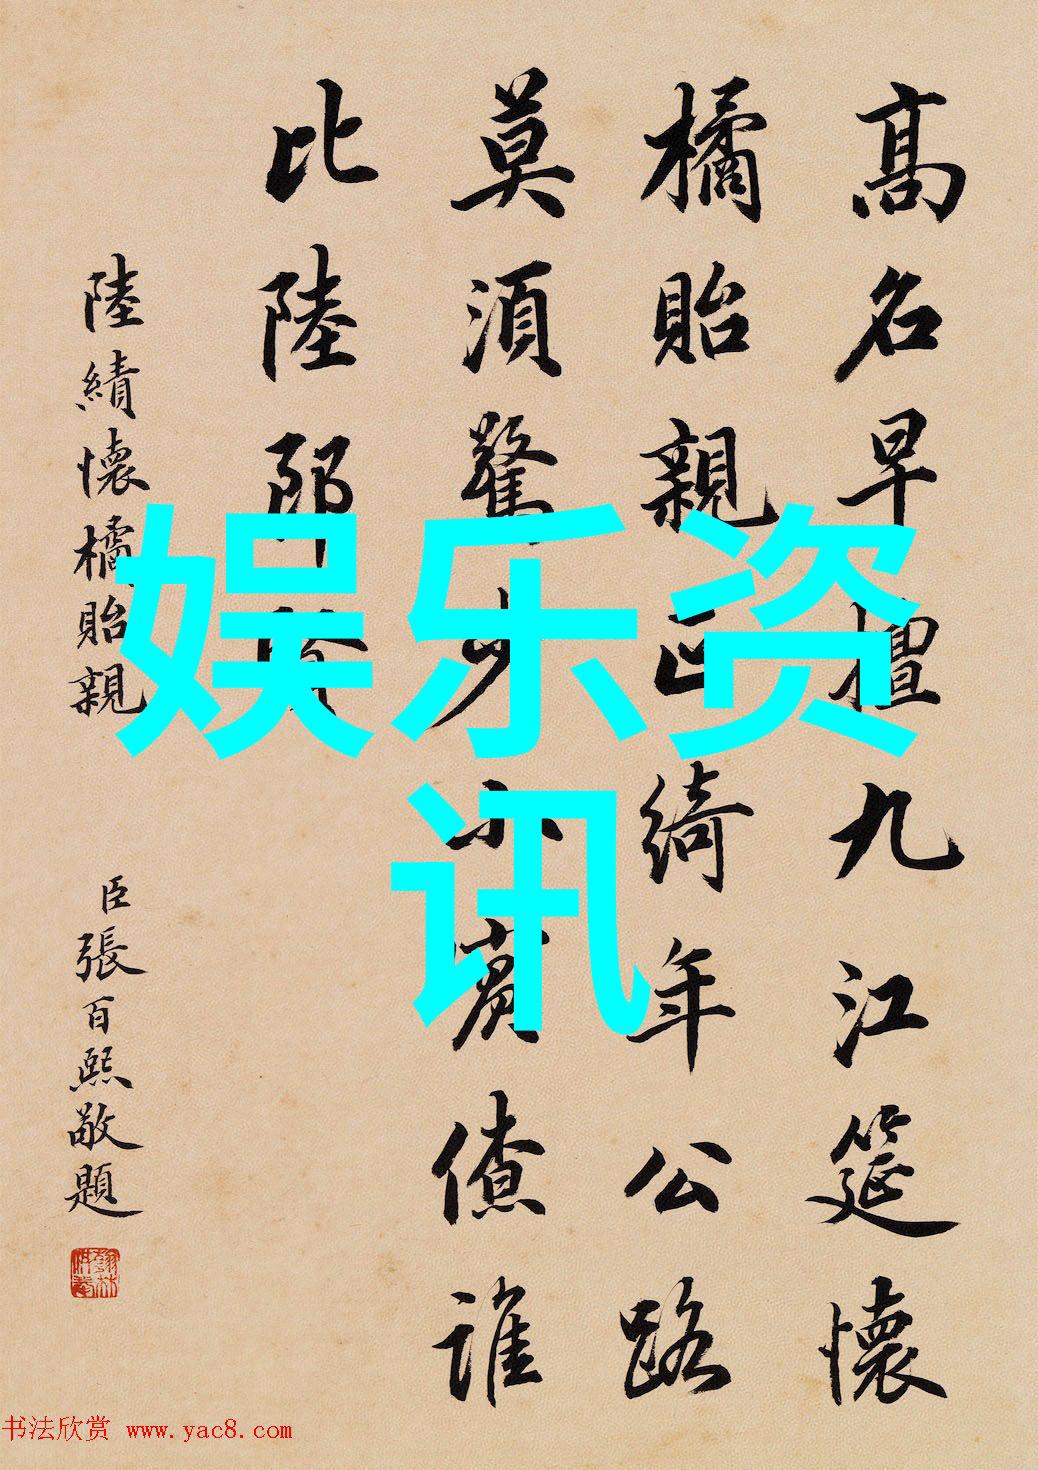 高名早擅九江筵懷
橘貽親正綺年公路
莫須驚少小賓僚誰
比陸郎賢
陸績懷橘貽親
臣張百熙敬題
娱乐资
讯
书法欣赏 www.yac8.com